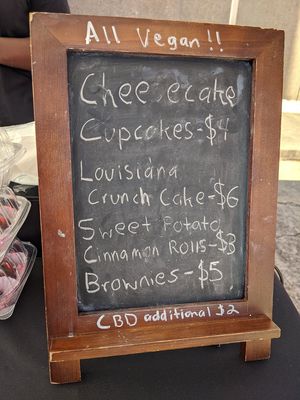 All Vegan!!
Cheesecake
Cupcakes-$4
Louisiana
Crunch Cake-$6
Sweet Potato
Cinnamon Rolls-$3
Brownies-$5
CBD additional $2